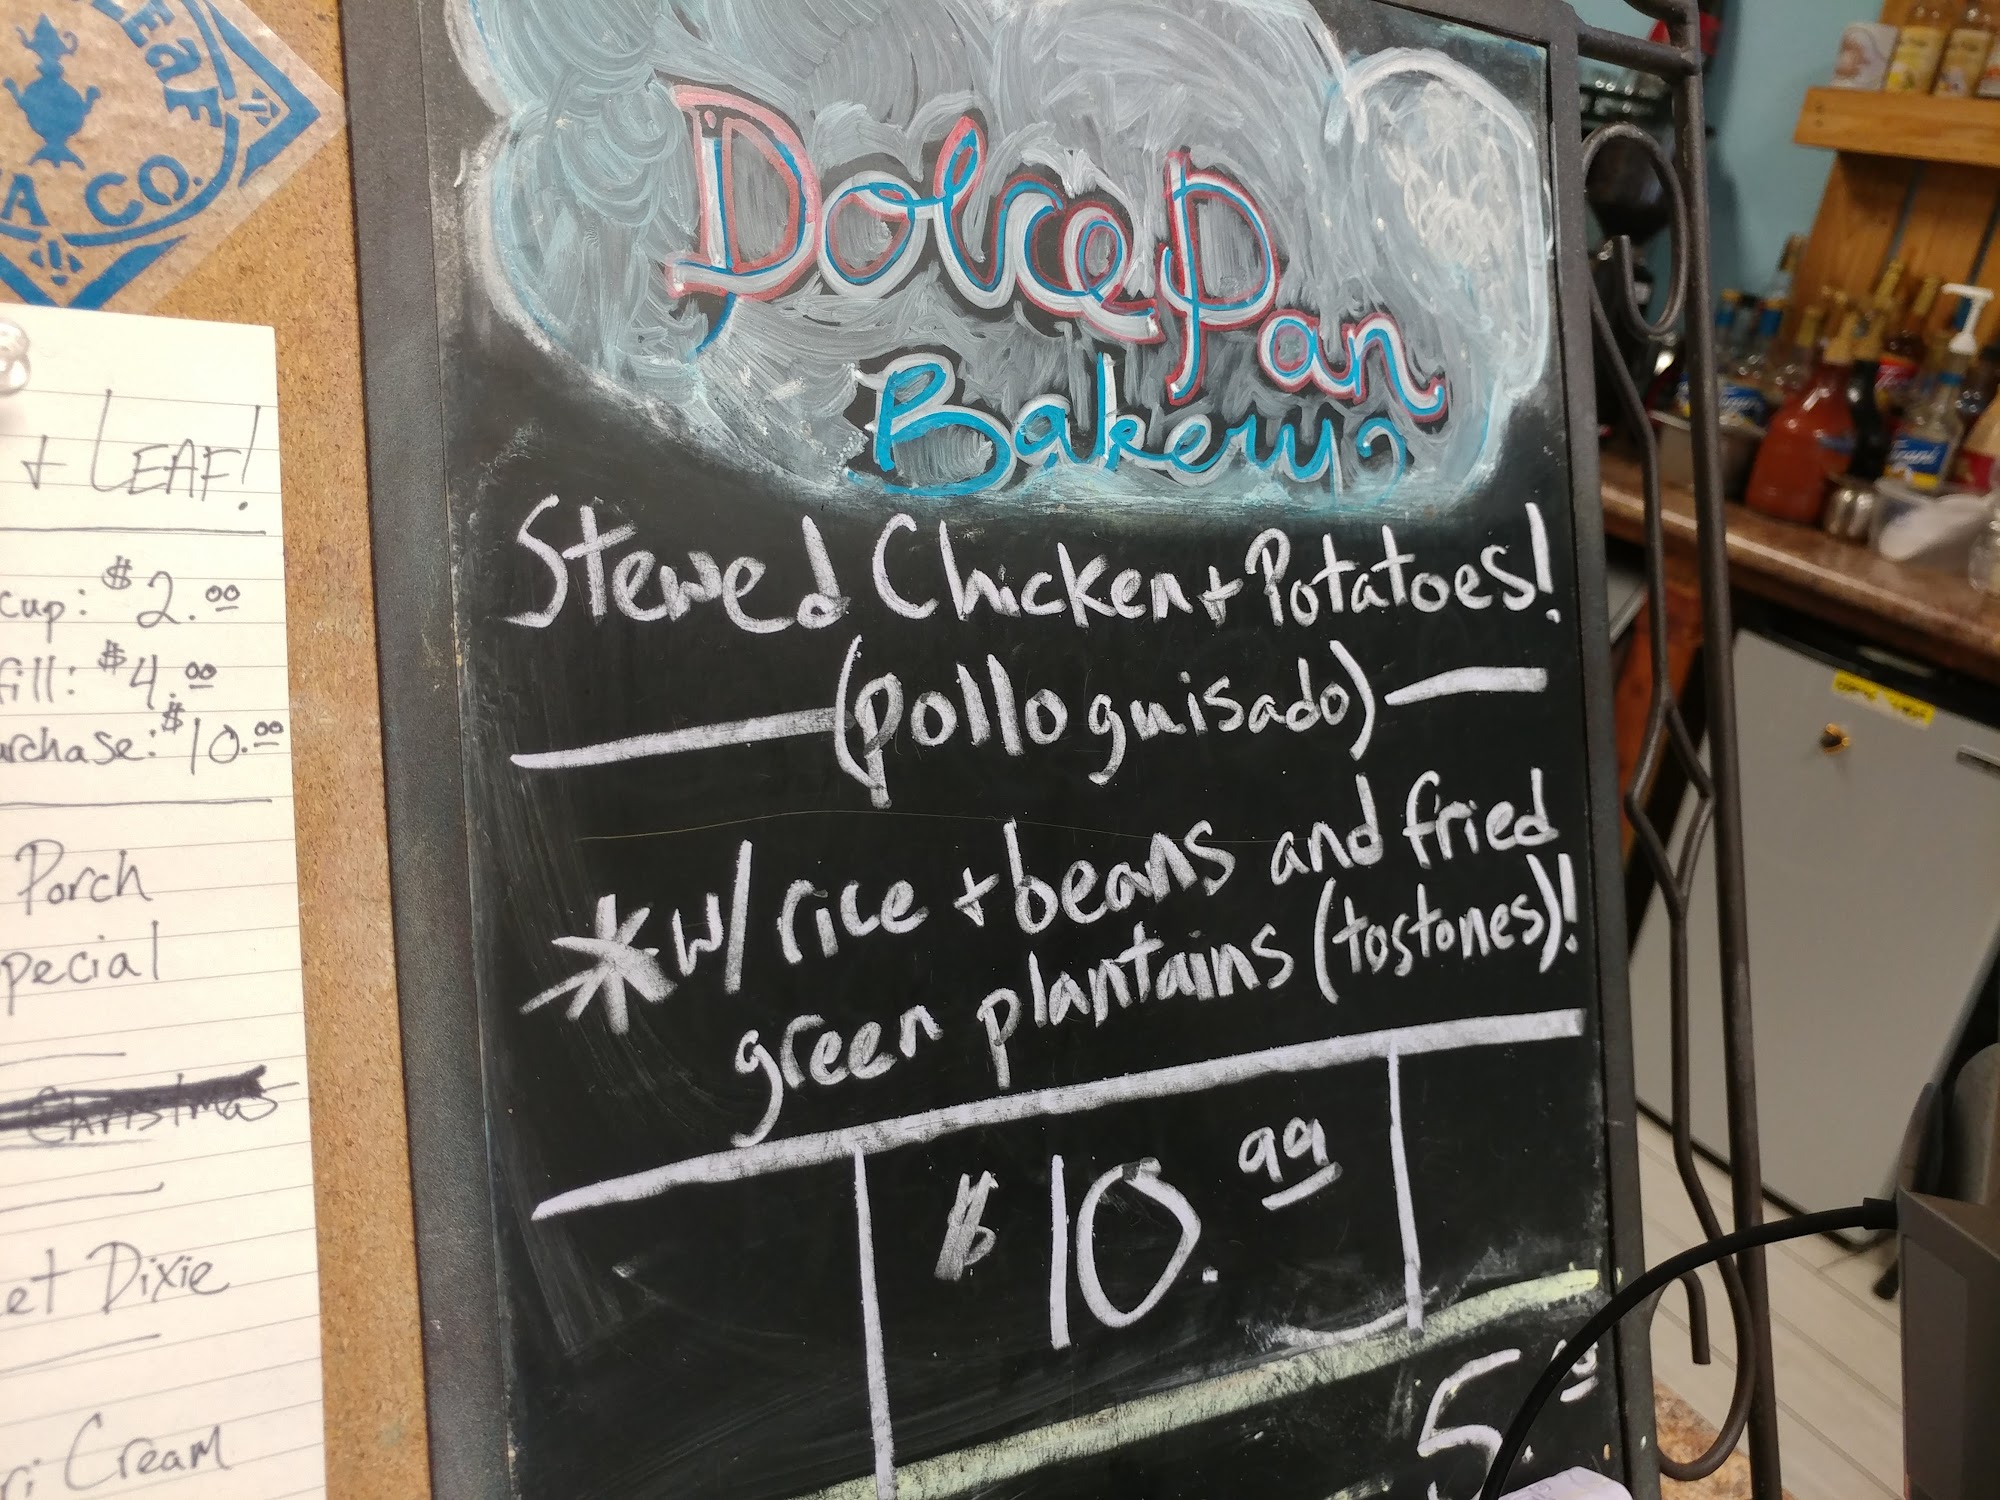 LEAF
CO.
+ LEAF!
cup: $2.00
fill: $4.00
$10.00
Porch
Christmas
Dixie
Cream
DolcePan
Bakery
Stewed Chicken + Potatoes!
(pollo guisado)
*w/ rice + beans and fried
green plantains (tostones)!
$10.99
5.